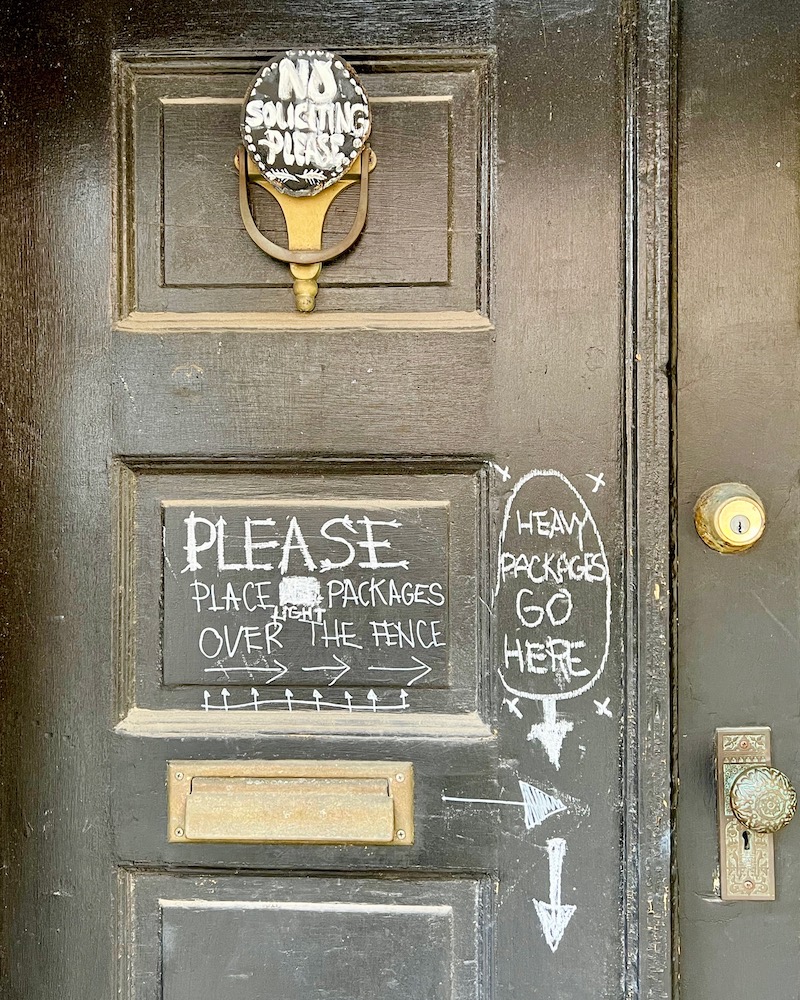 NO
SOLICITING
PLEASE
PLEASE
PLACE PACKAGES
LIGHT
OVER THE FENCE
HEAVY
PACKAGES
GO
HERE